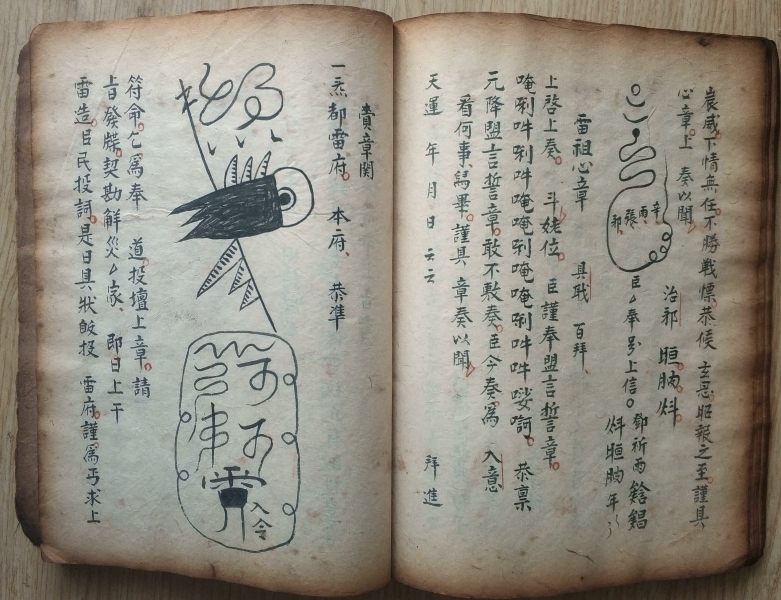 宸威下情無任不勝戰慄恭候 玄恩昭報之至謹具
心章上 奏以聞
治邪
辛 雨 張 邓
臣 奉 上信
鄧祈雨
年
雷祖心章 具戢 百拜
上啓上奏 斗姥位 臣謹奉盟言誓章
唵唎吽唎吽唵唵唎唵唵唎吽吽 恭禀
元降盟言誓章敢不敷奏臣今奏爲 入意
看何事寫畢謹具 章奏以聞
天運 年 月 日 云云 拜進
賫章関
一炁都雷府 本府 恭準
入令
符命乞爲奉 道投壇上章請
旨發牒契勘解災 家 即日上干
雷造臣民投詞是日具狀皈投 雷府謹爲丐求上